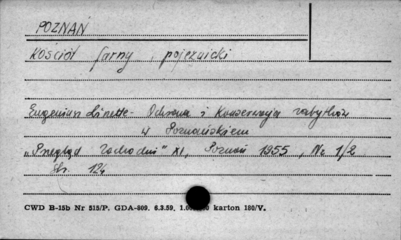 POZNAŃ
Kościół farny, pojezuicki
Eugeniusz Linette - Ochrona i Konserwacja zabytków
w Poznańskiem
„Przegląd Zachodni" XI, Poznań 1955, Nr 1/2
str. 124
CWD B-15b Nr 515/P. GDA-609. 6.3.59, karton 180/V.